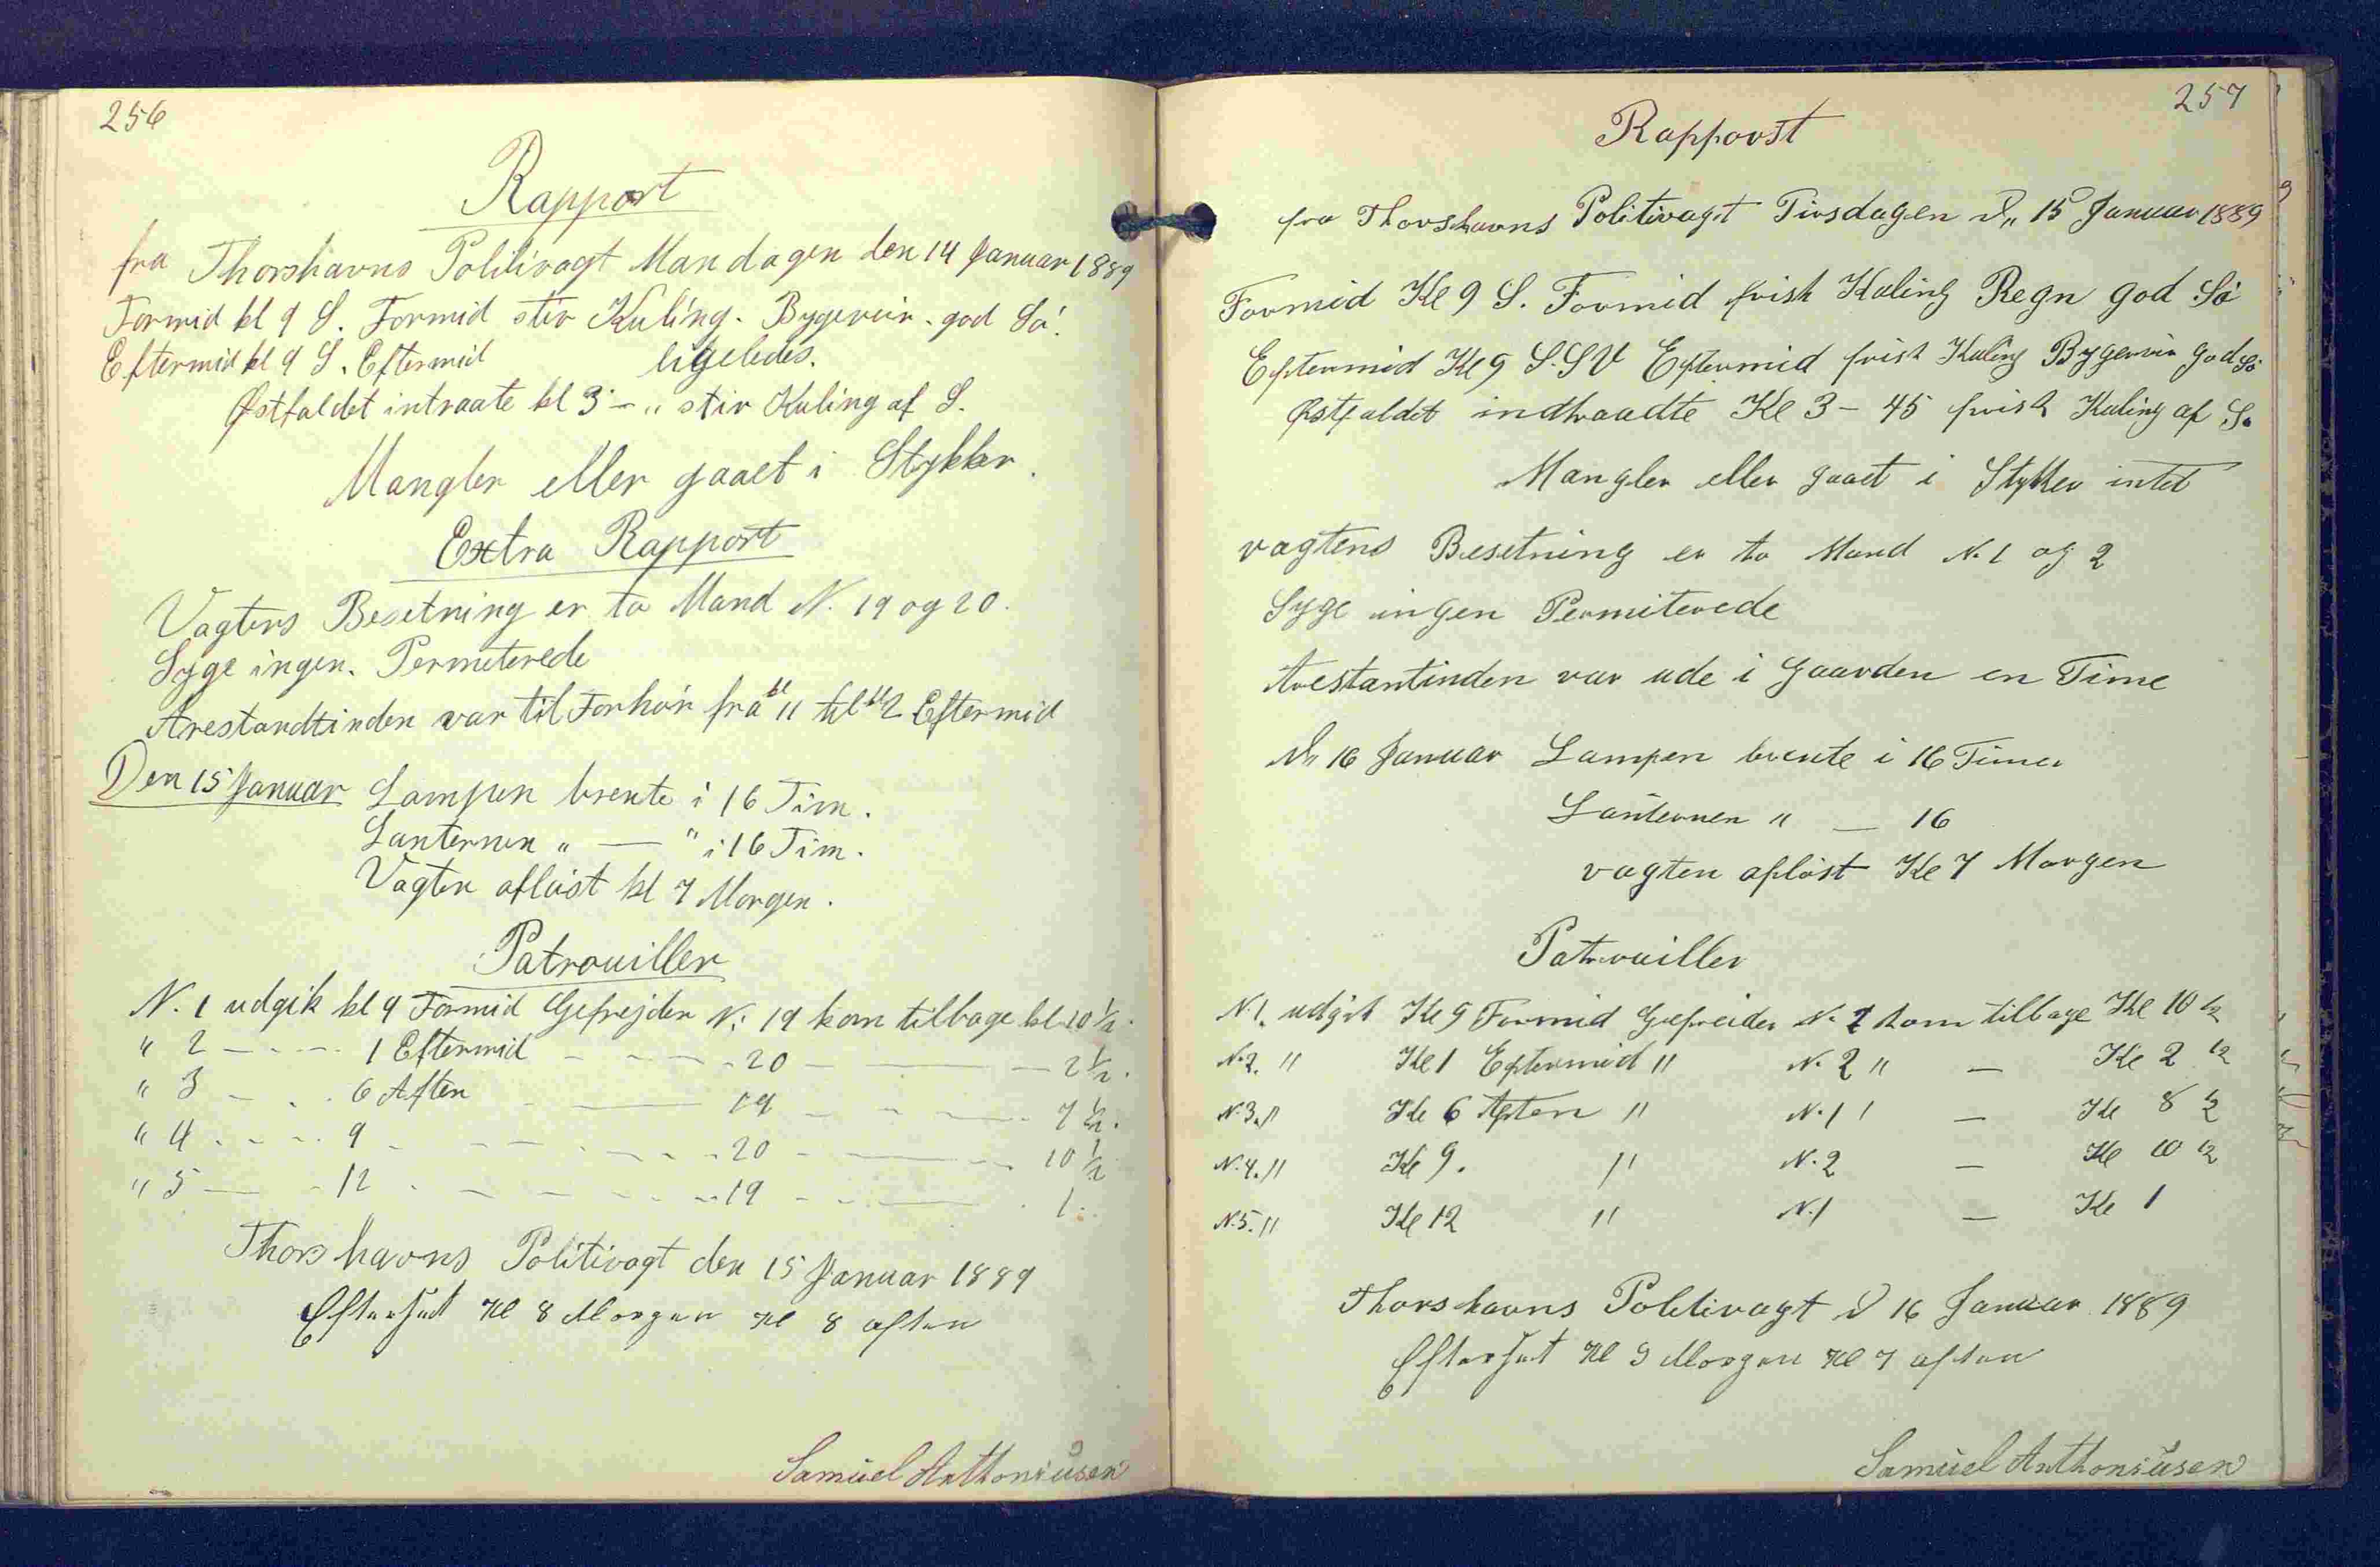 256
Rapport
fra Thorshavns Politivagt Mandagen den 14 Januar 1889
Formid kl 9 S. Formid stiv Kuling. Bygeveir. god Sö.
Eftermid kl 9 S. Eftermid ligeledes.
Østfaldet intraate kl 3 - " stiv Kuling af S.
Mangler eller gaaet i Stykker.
Extra Rapport
Vagtens Besetning er to Mand N. 19 og 20.
Syge ingen. Permeterede
Arestandtinden var til Forhör fra kl 11 til kl 2 Eftermid
Den 15 Januar Lampen brente i 16 Tim.
Lanternen " — " i 16 Tim.
Vagten aflöist kl 7 Morgen.
Patrouiller
N. 1 udgik kl 9 Formid Gefrejder N: 19 kom tilbage kl 10 1/2.
" 2 - - - - 1 Eftermid - - - - 20 - — - 2 1/2.
" 3 - - - 6 Aften — 19 - - - - 7 1/2.
" 4 - - - - 9 - - - - - 20 - — - 10 1/2
" 5 — - 12 - - - - - 19 - - — - 1.
Thorshavns Politivagt den 15 Januar 1889
Efterset Kl 8 Morgen Kl 8 aften
Samuel Anthoniusen
257
Rapport
fra Thorshavns Politivagt Tirsdagen d" 15 Januar 1889
Formid Kl 9 S. Formid frisk Kuling Regn god Sö
Eftermid Kl 9 S.SV Eftermid frisk Kuling Bygeveir god Sö
Østfaldet indtraadte Kl 3 - 45 frisk Kuling af S.
Mangler eller gaaet i Stykker intet
vagtens Besetning er to Mand N. 1 og 2
Syge ingen Permiterede
Arestantinden var ude i Gaarden en Time
d" 16 Januar Lampen brente i 16 Timer
Lanternen " — 16
vagten aflöst Kl 7 Morgen
Patrouiller
N. 1. udgik Kl 9 Formid Gefreider N. 1 kom tilbage Kl 10 1/2
N. 2. " Kl 1 Eftermid " N. 2 " — Kl 2 1/2
N. 3. " Kl 6 Aften " N. 1 " — Kl 8 1/2
N. 4. " Kl 9. " N. 2 — Kl 10 1/2
N. 5. " Kl 12 " N. 1 — Kl 1
Thorshavns Politivagt d 16 Januar 1889
Efterset Kl 9 Morgen Kl 7 aften
Samuel Anthoniusen